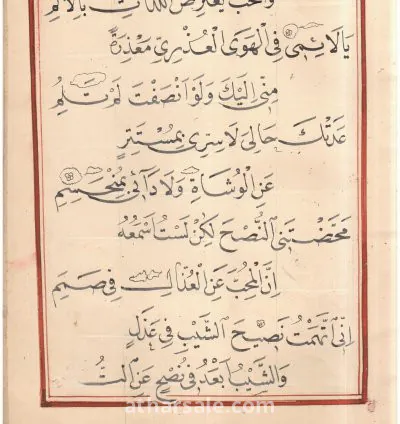 والحب يعترض اللذات بالالم
يَالَائِمِي فِي الْهَوَى الْعُذْرِيِّ مَعْذِرَةً
مِنِّي اِلَيْكَ وَلَوْ اَنْصَفْتَ لَمْ تَلُمِ
عَدَتْكَ حَالِيَ لَا سِرِّي بِمُسْتَتِرٍ
عَنِ الْوُشَاةِ وَلَا دَآئِي بِمُنْحَسِمِ
مَحَّضْتَنِي النُّصْحَ لٰكِنْ لَسْتُ اَسْمَعُهُ
اِنَّ الْمُحِبَّ عَنِ الْعُذَّالِ فِي صَمَمِ
اِنِّي اتَّهَمْتُ نَصِيحَ الشَّيْبِ فِي عَذَلٍ
وَالشَّيْبُ اَبْعَدُ فِي نُصْحٍ عَنِ التُّ
atharsale.com